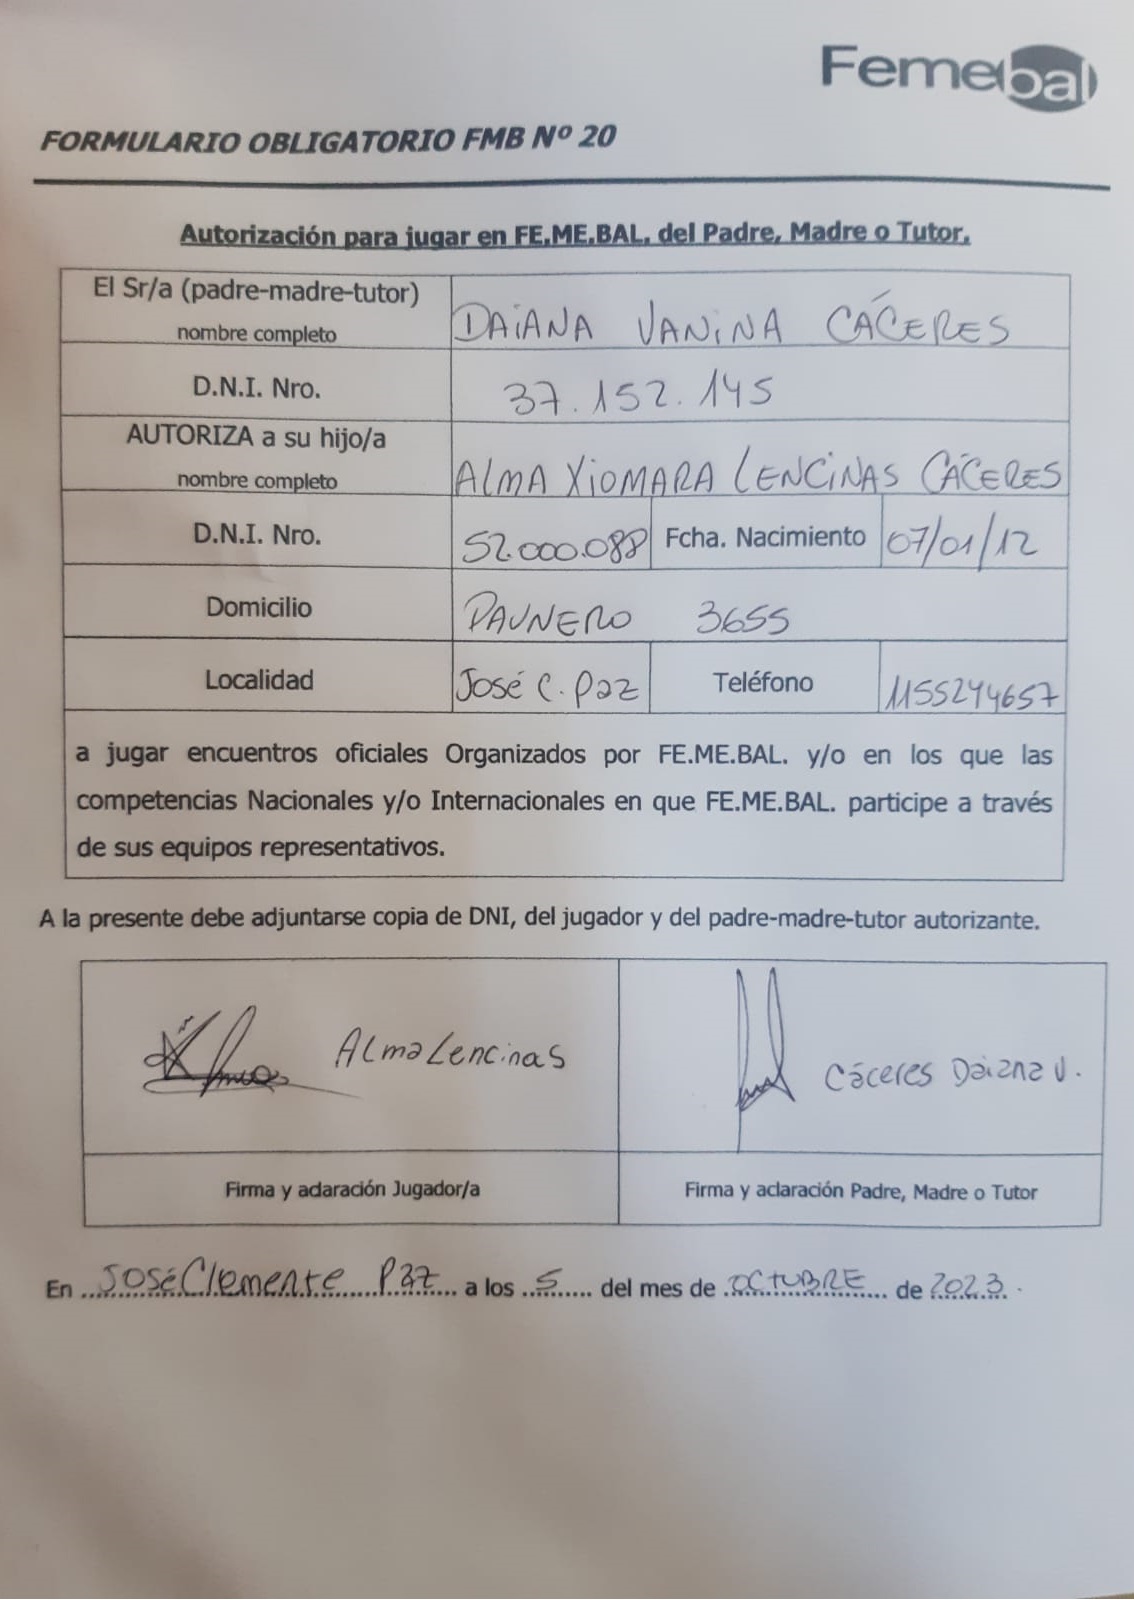 Femebal
FORMULARIO OBLIGATORIO FMB Nº 20
Autorización para jugar en FE.ME.BAL. del Padre, Madre o Tutor.
El Sr/a (padre-madre-tutor)
nombre completo
DAiANA VANiNA CÁCERES
D.N.I. Nro.
37.152.145
AUTORIZA a su hijo/a
nombre completo
ALMA XiOMARA LENCiNAS CÁCERES
D.N.I. Nro.
52.000.088
Fcha. Nacimiento
07/01/12
Domicilio
PAUNERO 3655
Localidad
José C. Paz
Teléfono
1155244657
a jugar encuentros oficiales Organizados por FE.ME.BAL. y/o en los que las
competencias Nacionales y/o Internacionales en que FE.ME.BAL. participe a través
de sus equipos representativos.
A la presente debe adjuntarse copia de DNI, del jugador y del padre-madre-tutor autorizante.
Alma Lencinas
Cáceres Daiana V.
Firma y aclaración Jugador/a
Firma y aclaración Padre, Madre o Tutor
En José Clemente Paz a los 5 del mes de OCTUBRE de 2023.